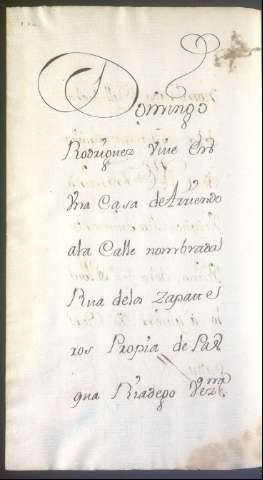 Domingo
Rodriguez Vive En
Vna Casa de Arriendo
ala Calle nombrada
Rua delos Zapatte
ros Propia de Pas
qua Riadego Vez.